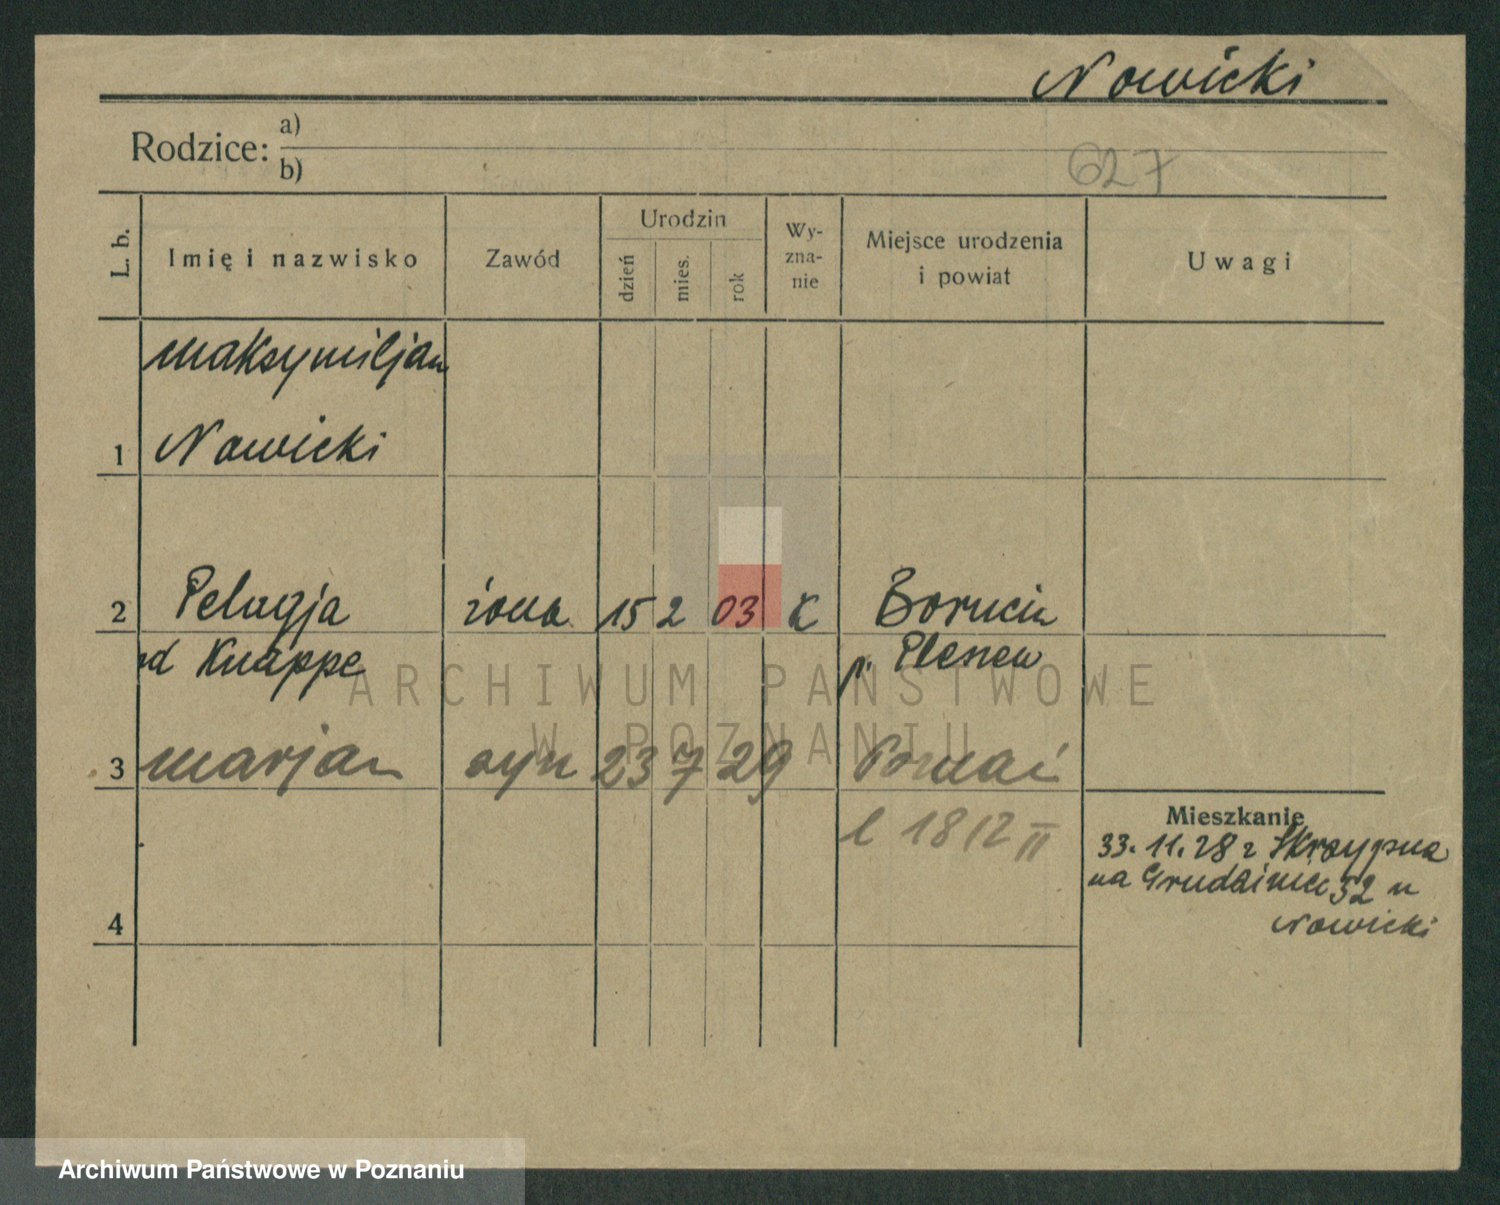 Nowicki
Rodzice:
a)
b)
627
L. b.
Imię i nazwisko
Zawód
Urodzin
dzień
mies.
rok
Wy-
zna-
nie
Miejsce urodzenia
i powiat
Uwagi
Maksymiljan
1 Nowicki
2 Pelagja żona 15 2 03 K Borucin
od Knappe p. Pleszew
3 Marjan syn 23 7 29 Poznań
l 1812 II
4
Mieszkanie
33. 11. 28 z Skrzypna
na Grudzieniec 52 u
Nowicki
ARCHIWUM PAŃSTWOWE
W POZNANIU
Archiwum Państwowe w Poznaniu